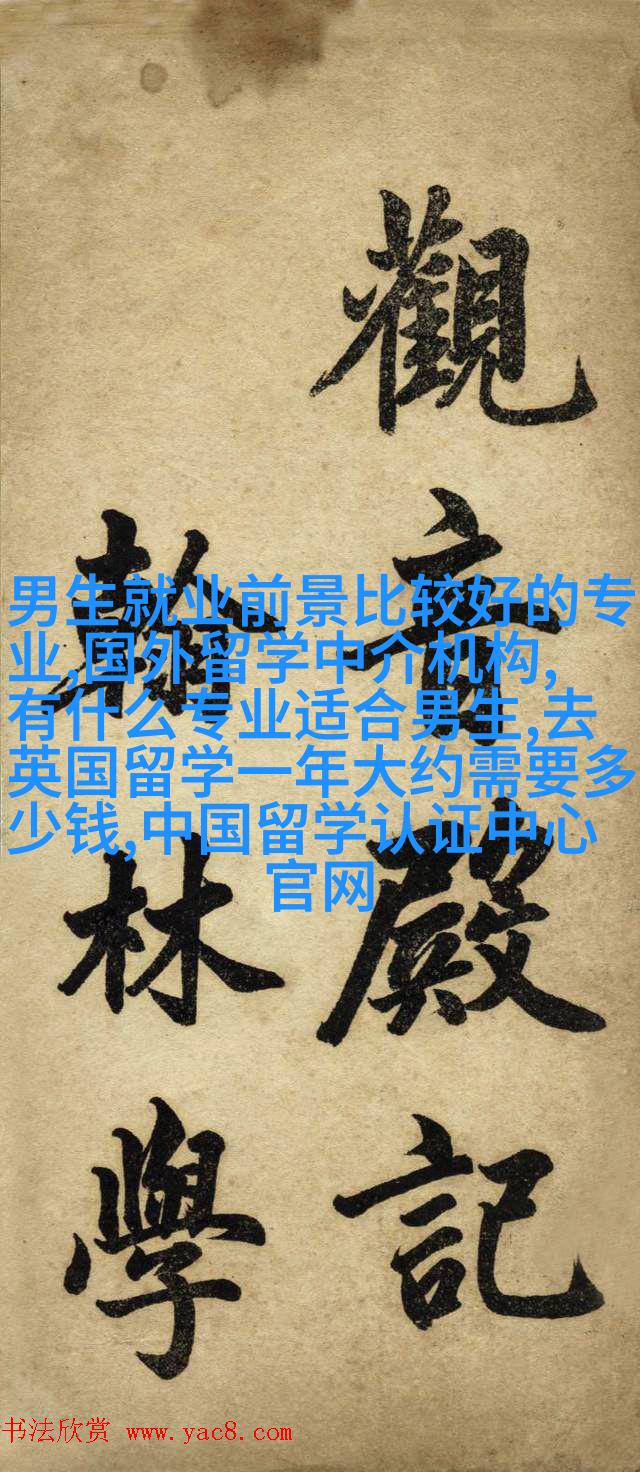 觀音殿記
翰林學
男生就业前景比较好的专
业,国外留学中介机构,
有什么专业适合男生,去
英国留学一年大约需要多
少钱,中国留学认证中心
官网
书法欣赏 www.yac8.com